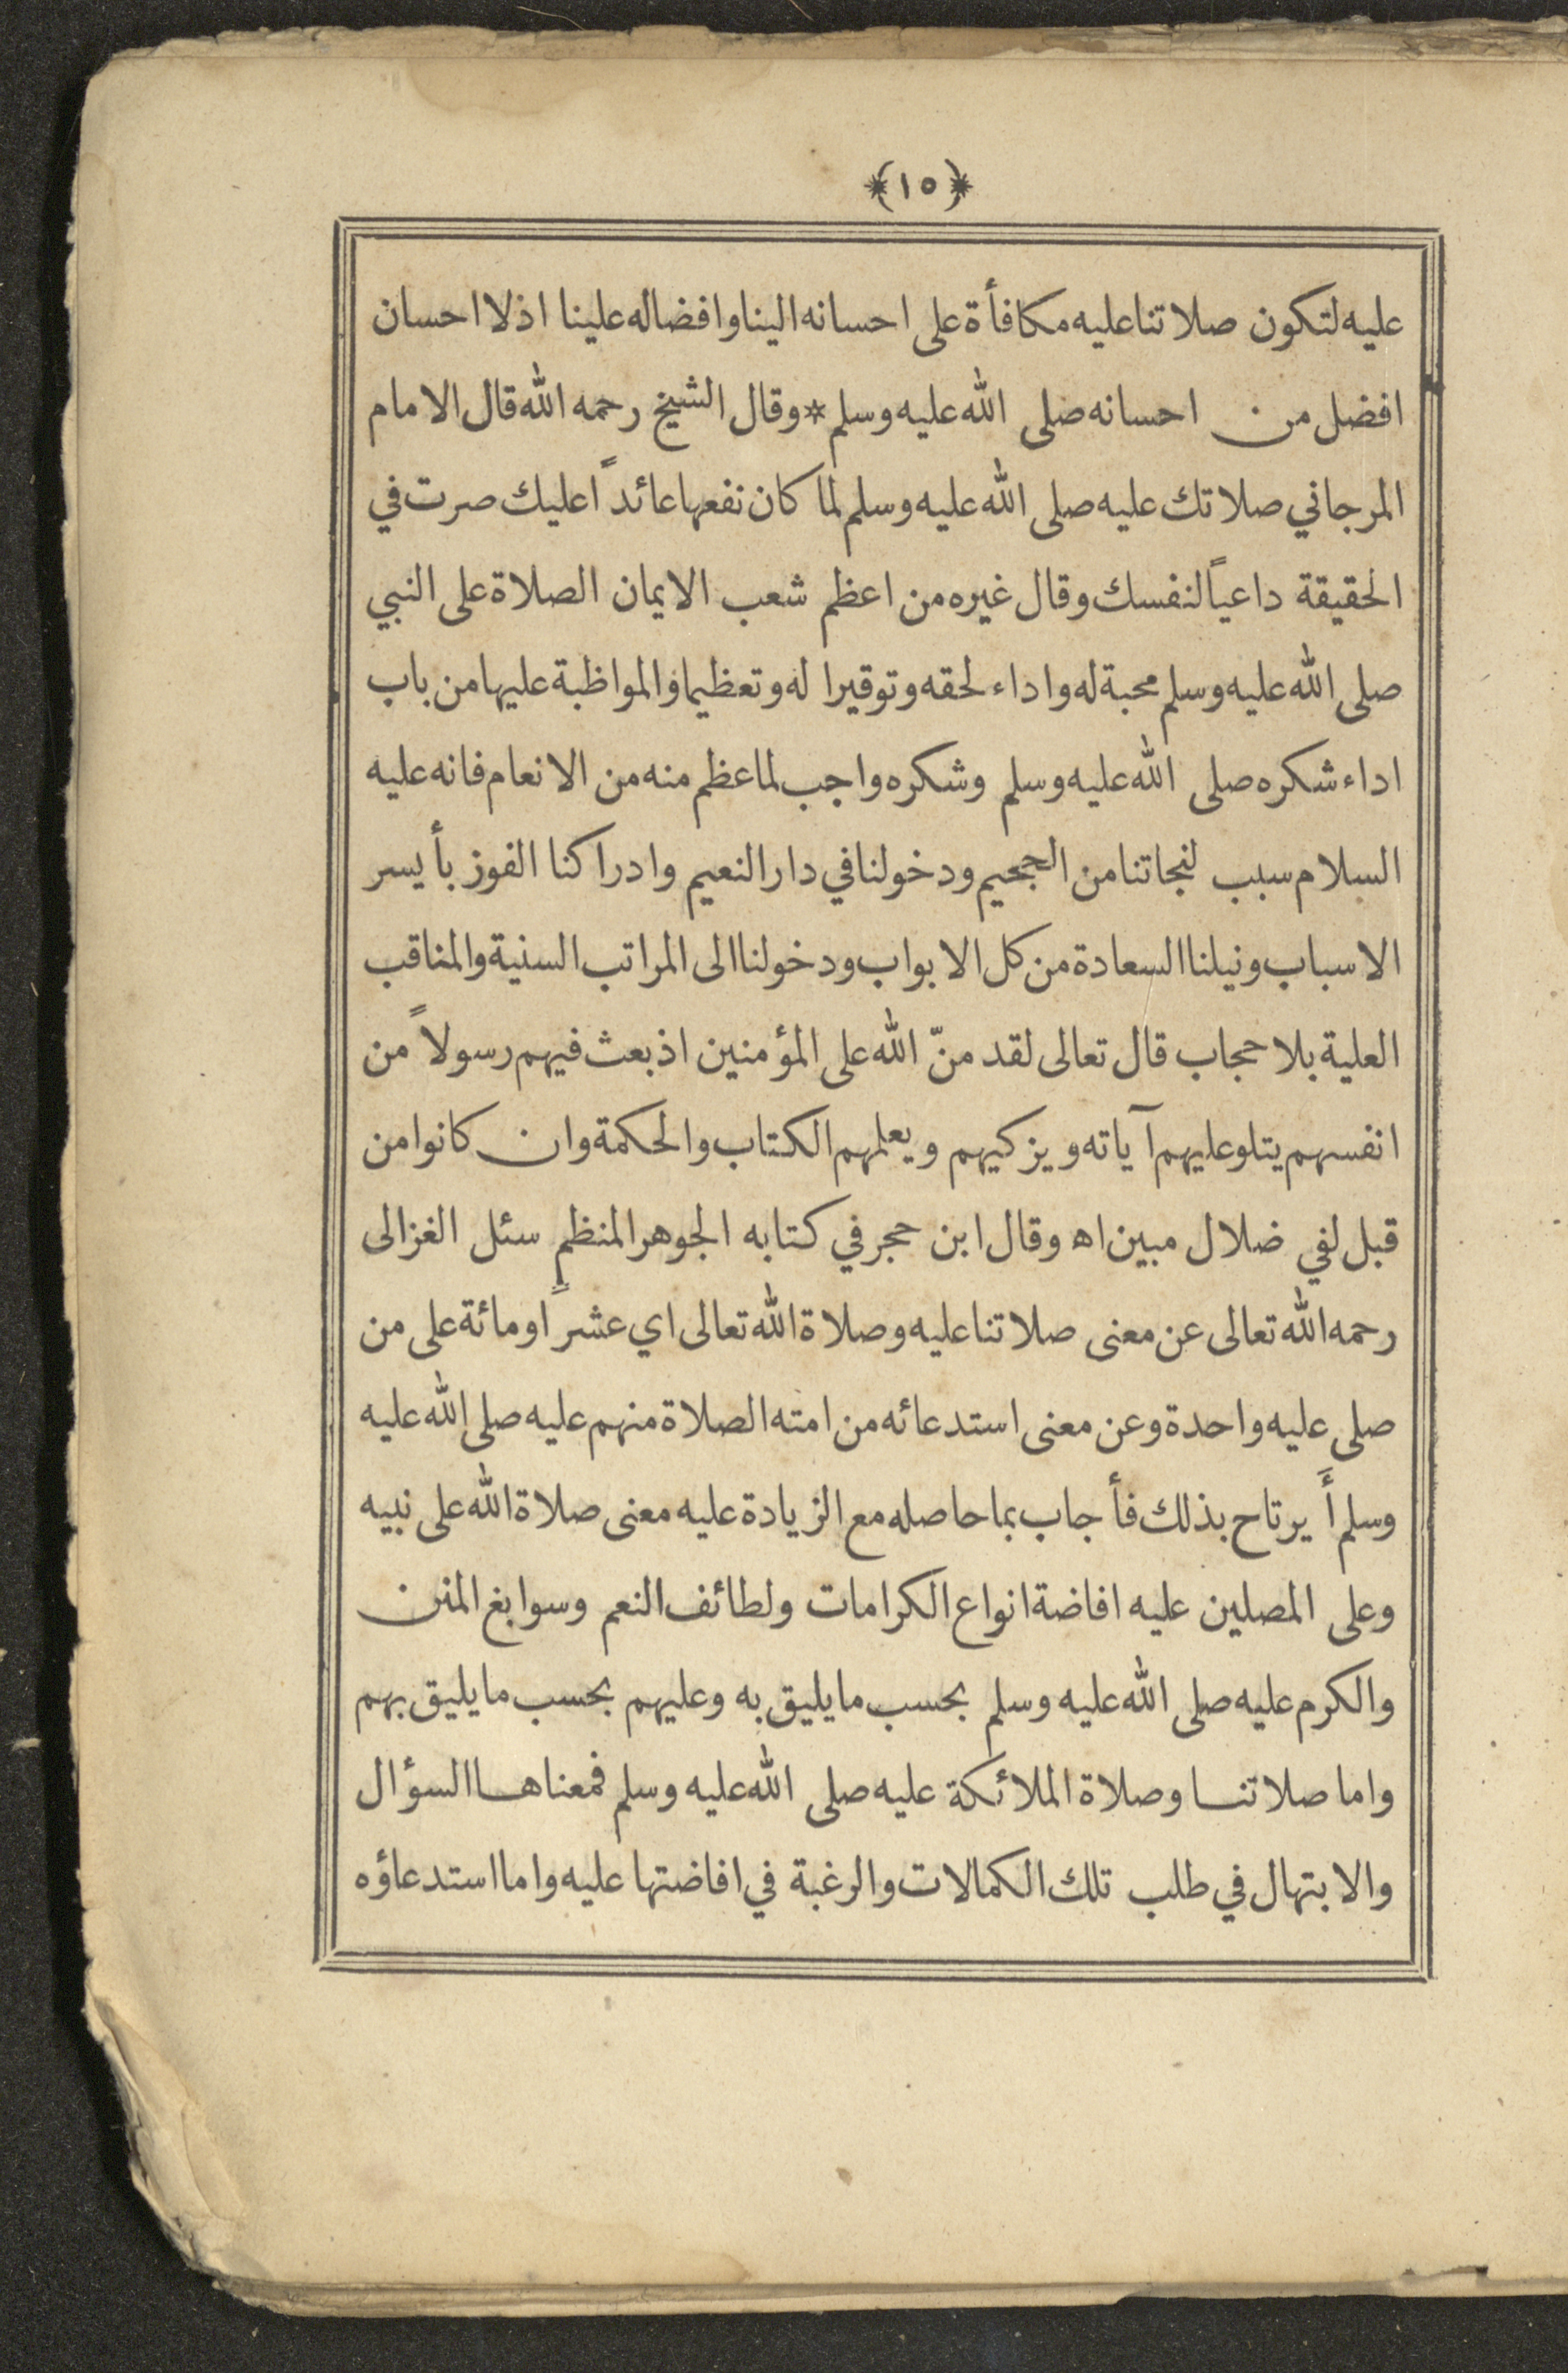 ﴿١٥﴾
عليه لتكون صلاتنا عليه مكافأة على احسانه الينا وافضاله علينا اذ لا احسان
افضل من احسانه صلى الله عليه وسلم * وقال الشيخ رحمه الله قال الامام
المرجاني صلاتك عليه صلى الله عليه وسلم لما كان نفعها عائداً عليك صرت في
الحقيقة داعياً لنفسك وقال غيره من اعظم شعب الايمان الصلاة على النبي
صلى الله عليه وسلم محبة له واداء لحقه وتوقيرا له وتعظيما والمواظبة عليها من باب
اداء شكره صلى الله عليه وسلم وشكره واجب لما عظم منه من الانعام فانه عليه
السلام سبب لنجاتنا من الجحيم ودخولنا في دار النعيم وادراكنا الفوز بأيسر
الاسباب ونيلنا السعادة من كل الابواب ودخولنا الى المراتب السنية والمناقب
العلية بلا حجاب قال تعالى لقد منّ الله على المؤمنين اذ بعث فيهم رسولاً من
انفسهم يتلو عليهم آياته ويزكيهم ويعلمهم الكتاب والحكمة وان كانوا من
قبل لفي ضلال مبين اه وقال ابن حجر في كتابه الجوهر المنظم سئل الغزالى
رحمه الله تعالى عن معنى صلاتنا عليه وصلاة الله تعالى اي عشراً او مائة على من
صلى عليه واحدة وعن معنى استدعائه من امته الصلاة منهم عليه صلى الله عليه
وسلم أَيرتاح بذلك فأجاب بما حاصله مع الزيادة عليه معنى صلاة الله على نبيه
وعلى المصلين عليه افاضة انواع الكرامات ولطائف النعم وسوابغ المنن
والكرم عليه صلى الله عليه وسلم بحسب ما يليق به وعليهم بحسب ما يليق بهم
واما صلاتنا وصلاة الملائكة عليه صلى الله عليه وسلم فمعناها السؤال
والابتهال في طلب تلك الكمالات والرغبة في افاضتها عليه واما استدعاؤه